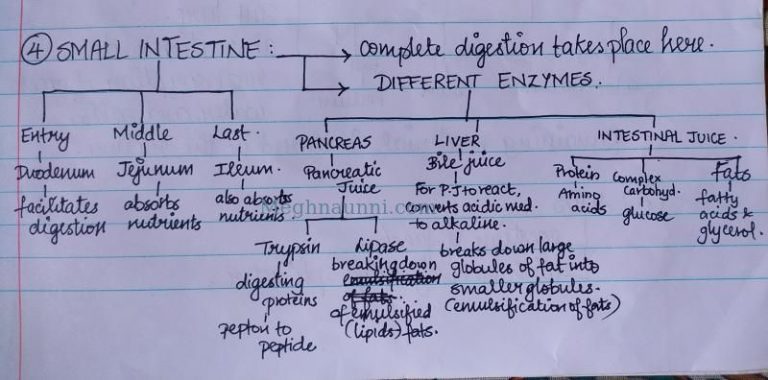 ④ SMALL INTESTINE : complete digestion takes place here.
DIFFERENT ENZYMES.
Entry Middle Last.
Duodenum Jejunum Ileum.
facilitates digestion
absorbs nutrients
also absorbs nutrients
PANCREAS
Pancreatic
Juice
Trypsin
digesting
proteins
pepton to
peptide
Lipase
breaking down
emulsification
of fats.
of emulsified
(lipids) fats.
LIVER
Bile juice
For P.J to react,
converts acidic med.
to alkaline.
breaks down large
globules of fat into
smaller globules.
(emulsification of fats)
INTESTINAL JUICE.
Protein
Amino
acids
Complex
Carbohyd.
glucose
Fats
fatty
acids &
glycerol.
Meghnaunni.com